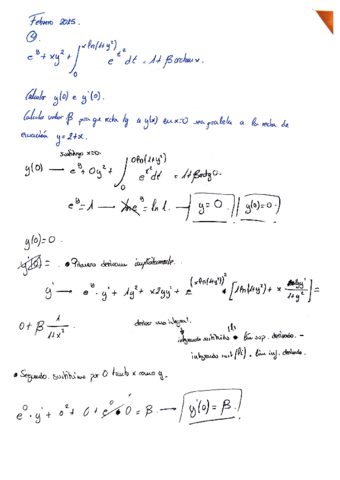 Febrero 2015.
④
e^y + xy² + ∫₀^{x ln(1+y²)} e^{t²} dt = 1 + β arctan x.
Calcule y(0) e y'(0).
Calcule valor β para que recta tg a y(x) en x=0 sea paralela a la recta de
ecuación y = 2+x.
sustituyo x=0.
y(0) → e^y + 0y² + ∫₀^{0 ln(1+y²)} e^{t²} dt = 1 + β arctg 0.
e^y = 1 → ln e^y = ln 1. → y = 0. y(0) = 0.
y(0) = 0.
y'(0) = . • Primero derivamos implícitamente.
y' → e^y · y' + 1y² + x2yy' + e^{(x ln(1+y²))²} · [1 ln(1+y²) + x 2yy'/(1+y²)] =
0 + β 1/(1+x²)
derivar una integral. (ls)
integrando sustituido • lim sup. derivado. -
integrando sust (li) • lim inf. derivado.
• Segundo. sustituimos por 0 tanto x como y.
e⁰ · y' + 0² + 0 + e⁰ • 0 = β → y'(0) = β.